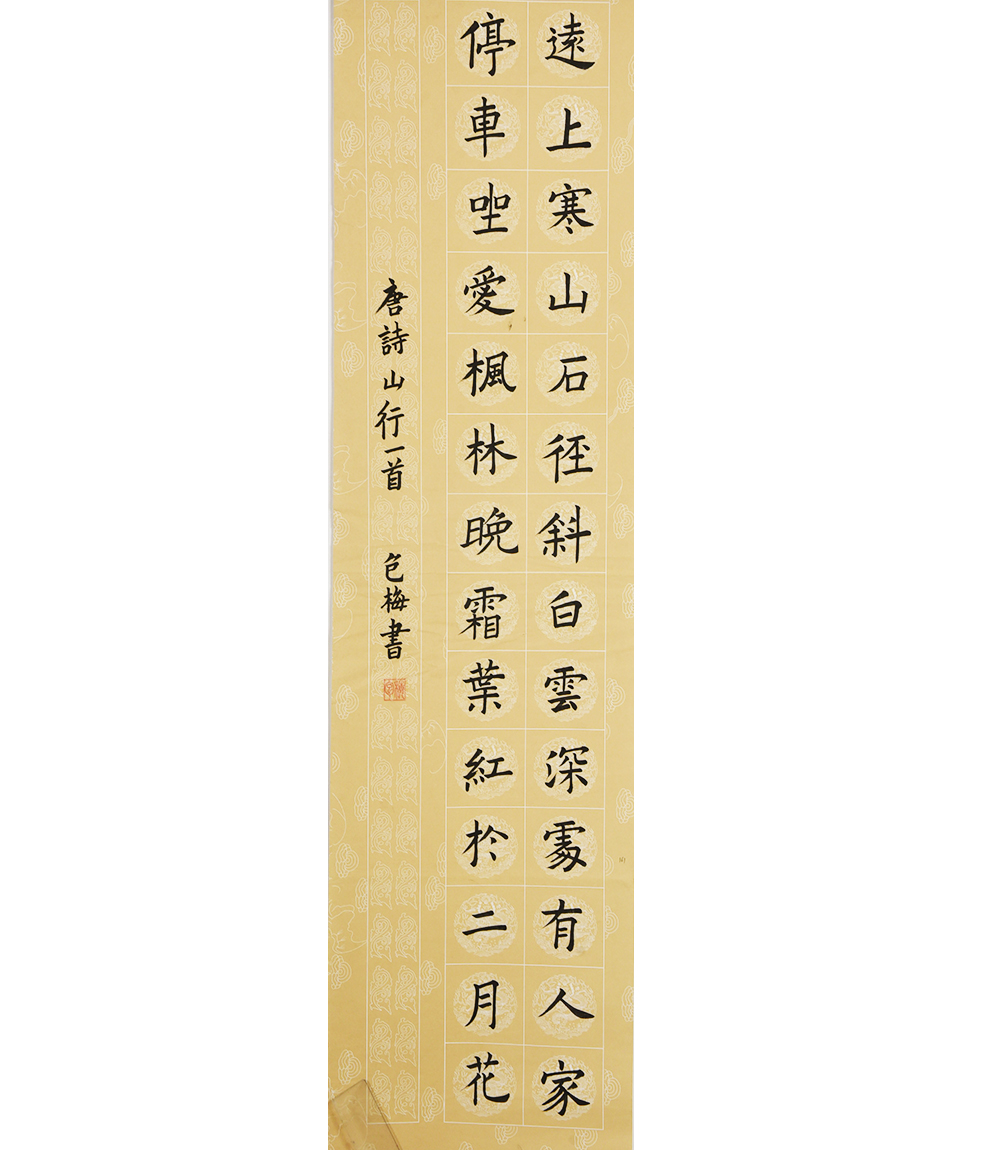 遠上寒山石径斜白雲深䖏有人家
停車坐愛楓林晩霜葉紅於二月花
唐詩山行一首 包梅書